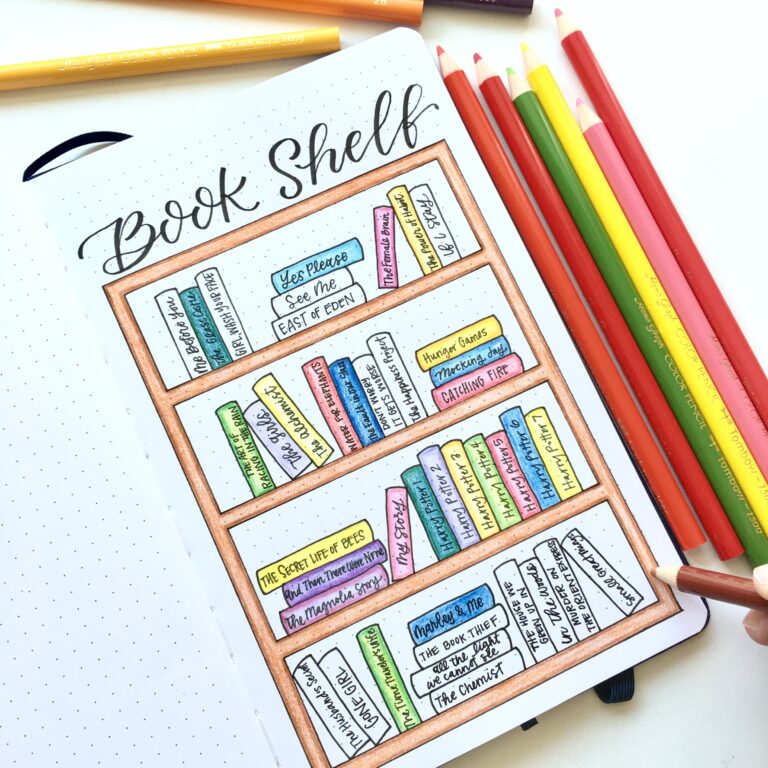 Book Shelf
The Before You
The Glass Castle
GIRL, WASH YOUR FACE
Yes Please
See Me
EAST OF EDEN
The Female Brain
The Power of Habit
If I Stay
THE ART OF
RACING IN THE RAIN
The Girls
The Alchemist
WATER FOR ELEPHANTS
The Fault in our Stars
DON'T WORRY
IT GETS WORSE
The Happiness Project
HUNGER GAMES
Mocking Jay
CATCHING FIRE
THE SECRET LIFE OF BEES
And Then There Were None
The Magnolia Story
My Story
Harry Potter 1
Harry Potter 2
Harry Potter 3
Harry Potter 4
Harry Potter 5
Harry Potter 6
Harry Potter 7
The Husband's Secret
GONE GIRL
The Time Traveler's Wife
Marley & Me
THE BOOK THIEF
all the light
we cannot see
The Chemist
THE HOUSE WE
GREW UP IN
In the Woods
MURDER ON
THE ORIENT EXPRESS
Small Great Things
COLOR PENCIL
Tombow-1500
COLOR PENCIL
Tombow-1500